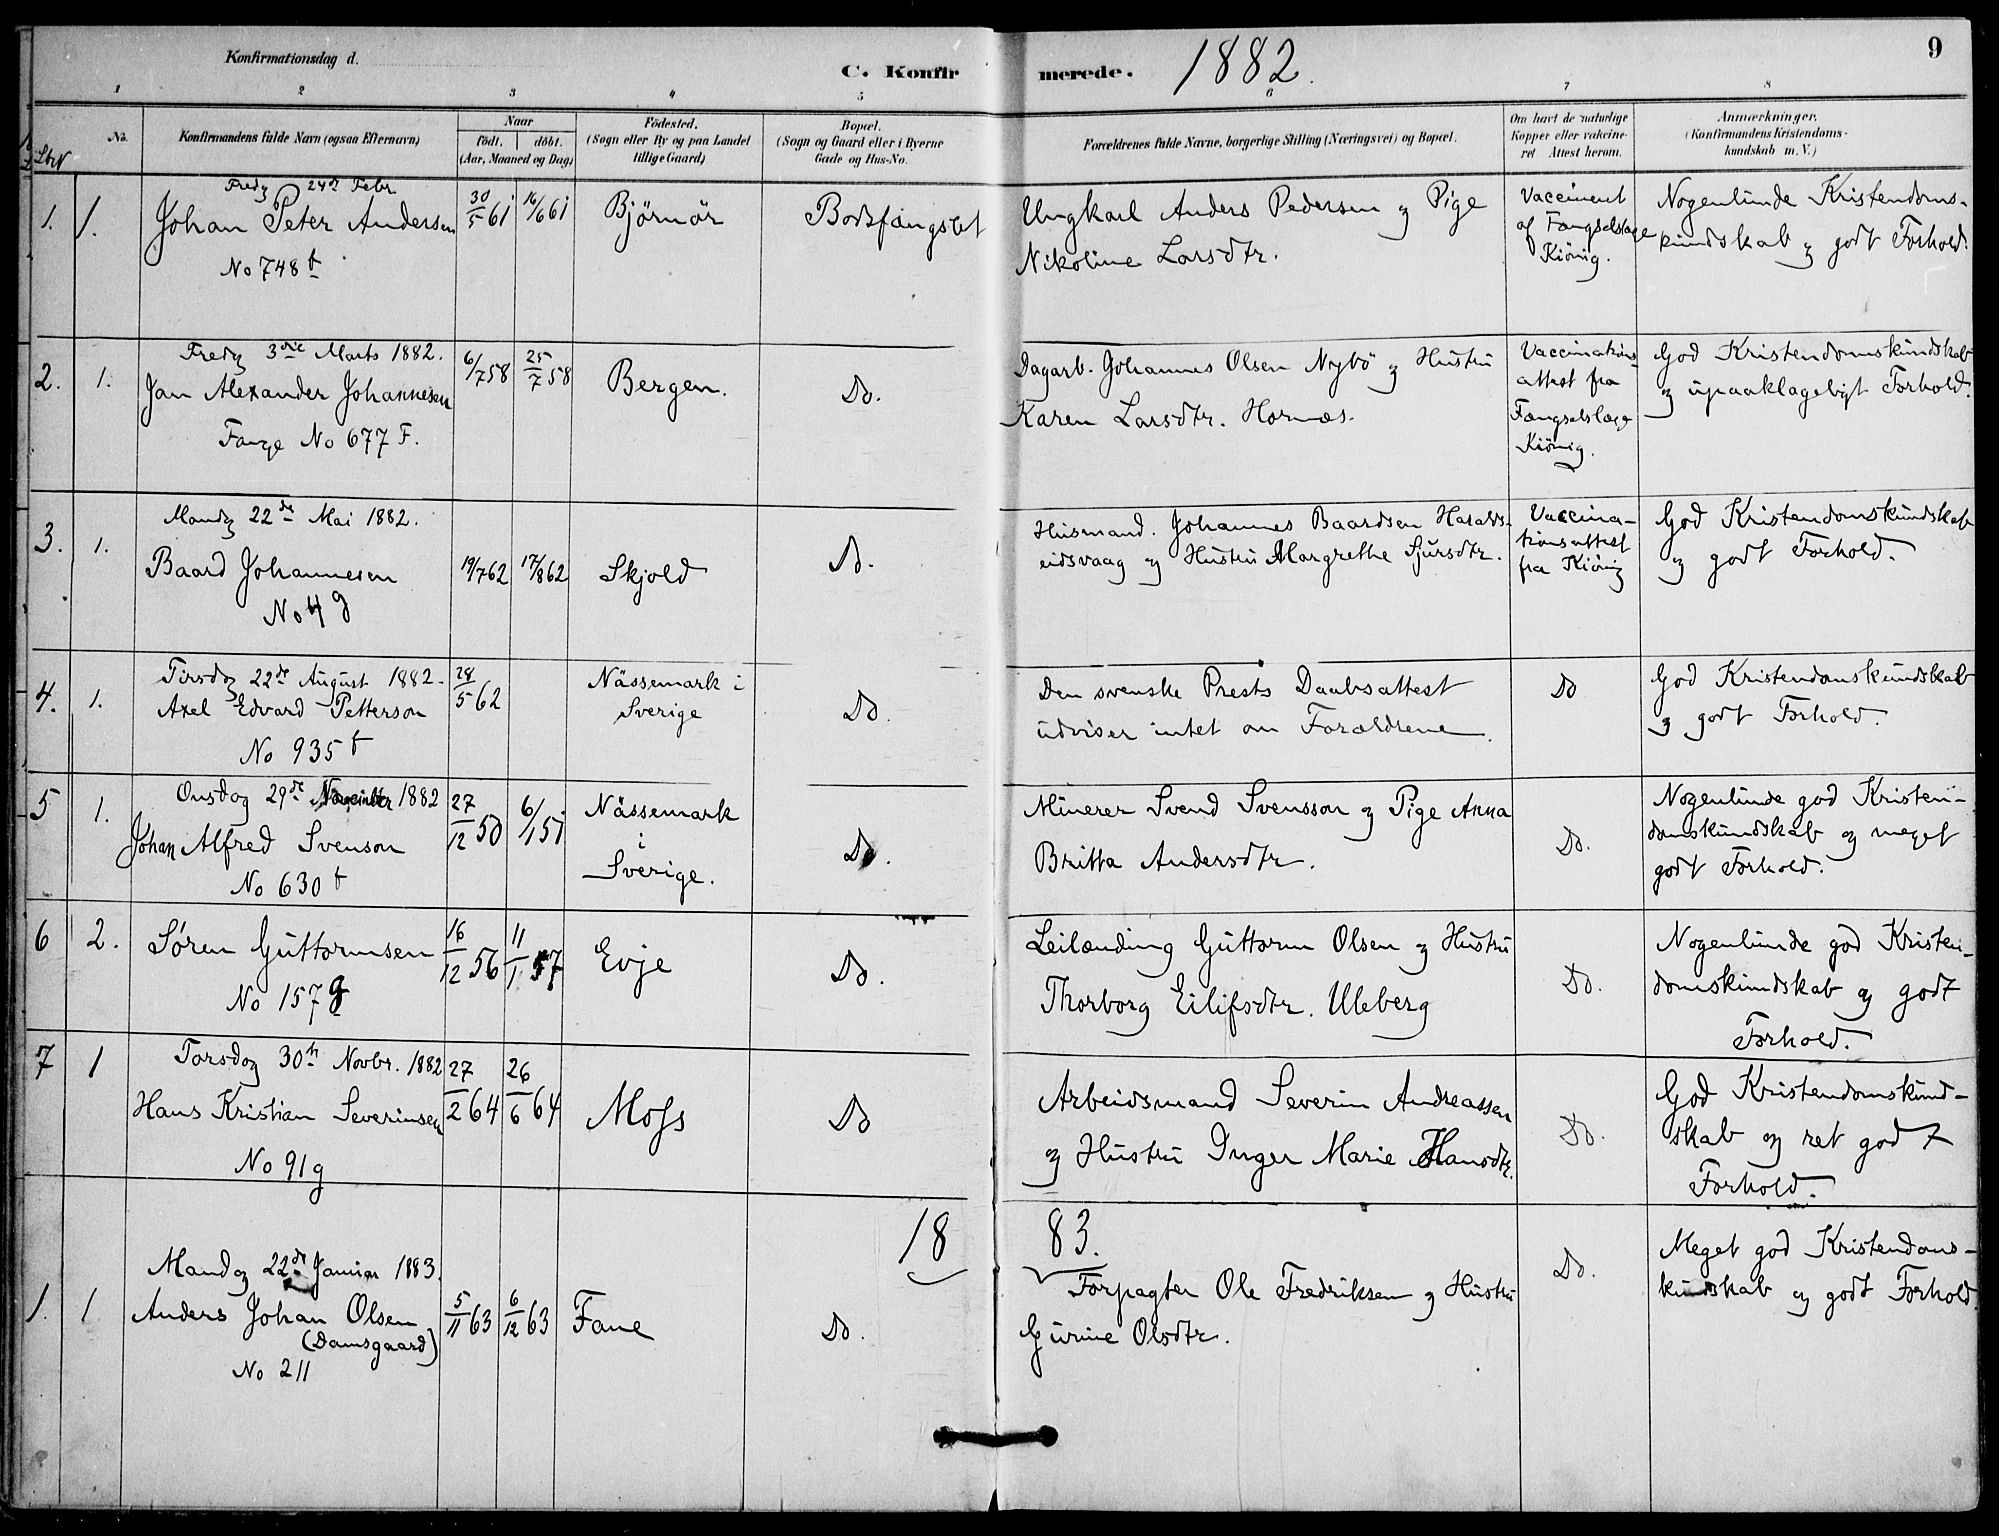 Konfirmationsdag d.
C. Konfirmerede. 1882. 9
1 2 3 4 5 6 7 8
Nö. Konfirmandens fulde Navn (ogsaa Efternavn)
Naar
födt. döbt.
(Aar, Maaned og Dag)
Födested.
(Sogn eller By og paa Landet
tillige Gaard)
Bopæl.
(Sogn og Gaard eller i Byerne
Gade og Hus-No.
Forældrenes fulde Navne, borgerlige Stilling (Næringsvei) og Bopæl.
Om havt de naturlige
Kopper eller vakcine-
ret Attest herom.
Anmærkninger.
(Konfirmandens Kristendoms-
kundskab m. V.)
Fredg 24de Febr
1. 1. Johan Peter Andersen
No 748 t
30/5 61 16/6 61
Björnör
Bodsfængslet
Ungkarl Anders Pedersen og Pige
Nikoline Larsdtr.
Vaccineret
af Fængselslæge
Kiönig.
Nogenlunde Kristendoms-
kundskab og godt Forhold.
Fredg 3die Marts 1882.
2. 1. Jan Alexander Johannesen
Fange No 677 F.
6/7 58 25/7 58
Bergen.
Do.
Dagarb. Johannes Olsen Nybö og Hustru
Karen Larsdtr. Hornæs.
Vaccinations
attest fra
Fængselslæge
Kiönig.
God Kristendomskundskab
og upaaklageligt Forhold.
Mandg 22de Mai 1882.
3. 1. Baard Johannesen
No 4 g
19/7 62 17/8 62
Skjold
Do.
Husmand. Johannes Baardsen Haralds-
eidsvaag og Hustru Margrethe Sjursdtr.
Vaccina-
tionsattest
fra Kiönig
God Kristendomskundskab
og godt Forhold.
Tirsdag 22de August 1882.
4. 1. Axel Edvard Petterson
No 935 t
28/5 62
Nässemark i
Sverige
Do.
Den svenske Prests Daabsattest
udviser intet om Forældrene.
Do
God Kristendomskundskab
og godt Forhold.
Onsdag 29de November 1882
5 1. Johan Alfred Svenson
No 630 t
27/12 50 6/1 51
Nässemark
i
Sverige.
Do.
Minerer Svend Svensson og Pige Anna
Britta Andersdtr.
Do.
Nogenlunde god Kristen-
domskundskab og meget
godt Forhold.
6 2. Sören Guttormsen
No 157 g
16/12 56 11/1 57
Evje
Do.
Leilænding Guttorm Olsen og Hustru
Thorborg Eilifsdtr. Uleberg
Do.
Nogenlunde god Kristen-
domskundskab og godt
Forhold.
Torsdag 30te Novbr. 1882
7 1 Hans Kristian Severinsen
No 91 g
27/2 64 26/6 64
Moss
Do
Arbeidsmand Severin Andreassen
og Hustru Inger Marie Hansdtr.
Do.
God Kristendomskund-
skab og ret godt
Forhold.
1883.
Mandag 22de Januar 1883.
1. 1 Anders Johan Olsen
(Damsgaard)
No 211
5/11 63 6/12 63
Fane
Do.
Forpagter Ole Fredriksen og Hustru
Gurine Olsdtr.
Do.
Meget god Kristendoms-
kundskab og godt Forhold.